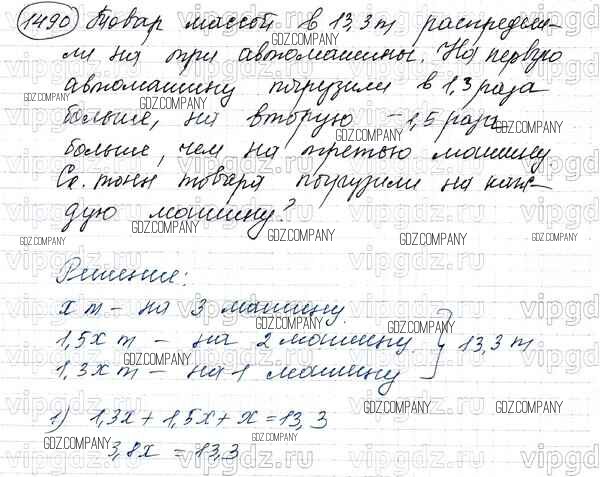 1490 Товар массой в 13,3 т распредели-
ли на три автомашины. На первую
автомашину погрузили в 1,3 раза
больше, на вторую – 1,5 раза
больше, чем на третью машину.
Ск. тонн товара погрузили на каж-
дую машину?
Решение:
x т – на 3 машину.
1,5x т – на 2 машину. } 13,3 т
1,3x т – на 1 машину
1) 1,3x + 1,5x + x = 13,3
3,8x = 13,3